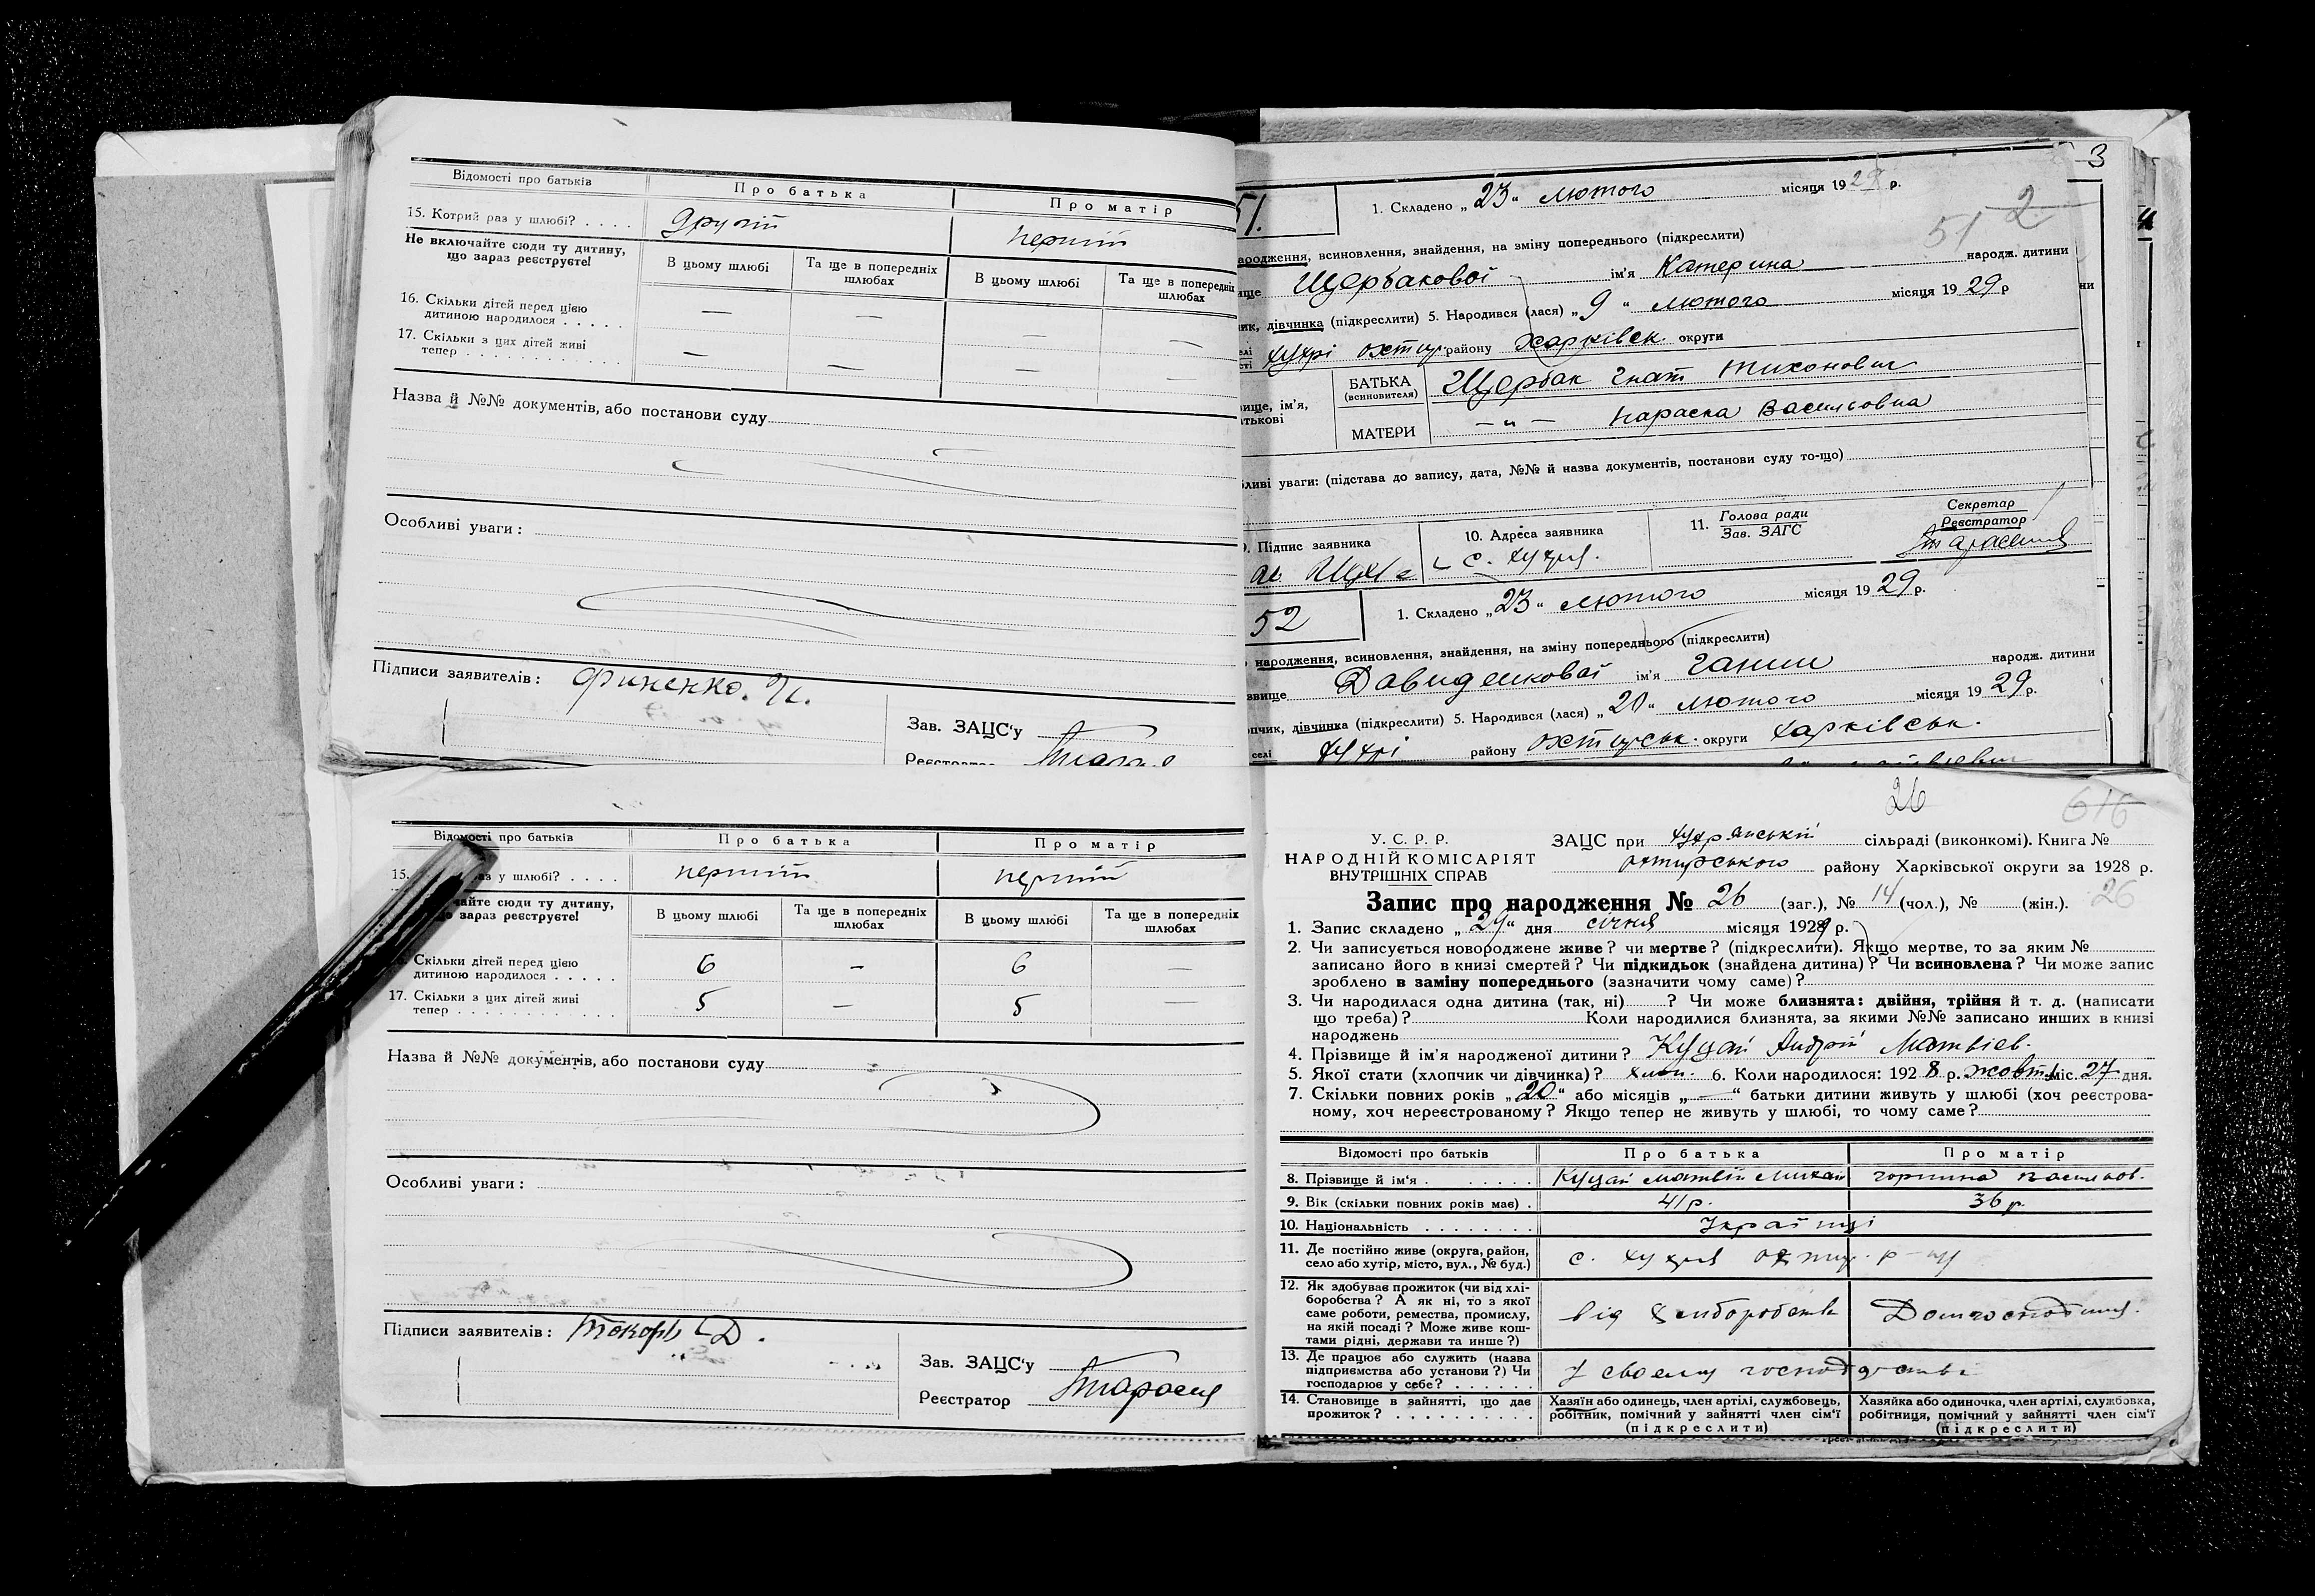 Відомості про батьків Про батька Про матір
15. Котрий раз у шлюбі? . . . . другій перший
Не включайте сюди ту дитину, що зараз реєструєте!
В цьому шлюбі Та ще в попередніх шлюбах В цьому шлюбі Та ще в попередніх шлюбах
16. Скільки дітей перед цією дитиною народилося . . . . . — — — —
17. Скільки з цих дітей живі тепер . . . . . . . . . . . . — — — —
Назва й №№ документів, або постанови суду
Особливі уваги:
Підписи заявителів: Финенко. И.
Зав. ЗАЦС'у
Реєстратор
3
51. 1. Складено „23" лютого місяця 1929 р.
51 2
ародження, всиновлення, знайдення, на зміну попереднього (підкреслити)
ище Щербакової ім'я Катерина народж. дитини
ик, дівчинка (підкреслити) 5. Народився (лася) „9" лютого місяця 1929 р
ни
елі Хухрі охтир. району Харківськ. округи
сті
вище, ім'я,
атькові
БАТЬКА (всиновителя) Щербак Гнат Тихонович
МАТЕРИ —„— Параска Васильовна
ливі уваги: (підстава до запису, дата, №№ й назва документів, постанови суду то-що)
9. Підпис заявника 10. Адреса заявника 11. Голова ради Зав. ЗАГС Секретар Реєстратор
с. Хухря.
52 1. Складено „23" лютого місяця 1929 р.
народження, всиновлення, знайдення, на зміну попереднього (підкреслити)
звище Давиденкової ім'я Ганни народж. дитини
пчик, дівчинка (підкреслити) 5. Народився (лася) „20" лютого місяця 1929 р.
селі Хухрі району Охтирськ. округи Харківськ.
Відомості про батьків Про батька Про матір
15. аз у шлюбі? . . . . перший перший
чайте сюди ту дитину,
о зараз реєструєте!
В цьому шлюбі Та ще в попередніх шлюбах В цьому шлюбі Та ще в попередніх шлюбах
Скільки дітей перед цією дитиною народилося . . . . . 6 — 6 —
17. Скільки з цих дітей живі тепер . . . . . . . . . . . . 5 — 5 —
Назва й №№ документів, або постанови суду
Особливі уваги:
Підписи заявителів: Токарь Д.
Зав. ЗАЦС'у
Реєстратор
26 616
У. С. Р. Р.
НАРОДНІЙ КОМІСАРІЯТ
ВНУТРІШНІХ СПРАВ
ЗАЦС при Хухрянській сільраді (виконкомі). Книга №
охтирського району Харківської округи за 1928 р.
Запис про народження № 26 (заг.), № 14 (чол.), № (жін.). 26
1. Запис складено „29" дня січня місяця 1929 р.
2. Чи записується новороджене живе? чи мертве? (підкреслити). Якщо мертве, то за яким №
записано його в книзі смертей? Чи підкидьок (знайдена дитина)? Чи всиновлена? Чи може запис
зроблено в заміну попереднього (зазначити чому саме)?
3. Чи народилася одна дитина (так, ні) ? Чи може близнята: двійня, трійня й т. д. (написати
що треба)? Коли народилися близнята, за якими №№ записано инших в книзі
народжень
4. Прізвище й ім'я народженої дитини? Куцай Андрій Матвієв.
5. Якої стати (хлопчик чи дівчинка)? хлоп. 6. Коли народилося: 1928 р. жовт. міс. 27 дня.
7. Скільки повних років „20" або місяців „—" батьки дитини живуть у шлюбі (хоч реєстрова-
ному, хоч нереєстрованому? Якщо тепер не живуть у шлюбі, то чому саме?
Відомості про батьків Про батька Про матір
8. Прізвище й ім'я . . . . . . Куцай Матвій Михай Горпина Васильов.
9. Вік (скільки повних років має) . 41 р. 36 р.
10. Національність . . . . . . . . Українці
11. Де постійно живе (округа, район, село або хутір, місто, вул., № буд.) с. Хухря охтир. р-ну
12. Як здобуває прожиток (чи від хлі-
боробства? А як ні, то з якої
саме роботи, ремества, промислу,
на якій посаді? Може живе кош-
тами рідні, держави та инше?)
від хліборобства Домгосподиня.
13. Де працює або служить (назва
підприємства або установи?) Чи
господарює у себе? . . . . . .
У своєму господарстві
14. Становище в зайнятті, що дає
прожиток? . . . . . . . . . .
Хазяїн або одинець, член артілі, службовець,
робітник, помічний у зайнятті член сім'ї
(підкреслити)
Хазяйка або одиночка, член артілі, службовка,
робітниця, помічний у зайнятті член сім'ї
(підкреслити)